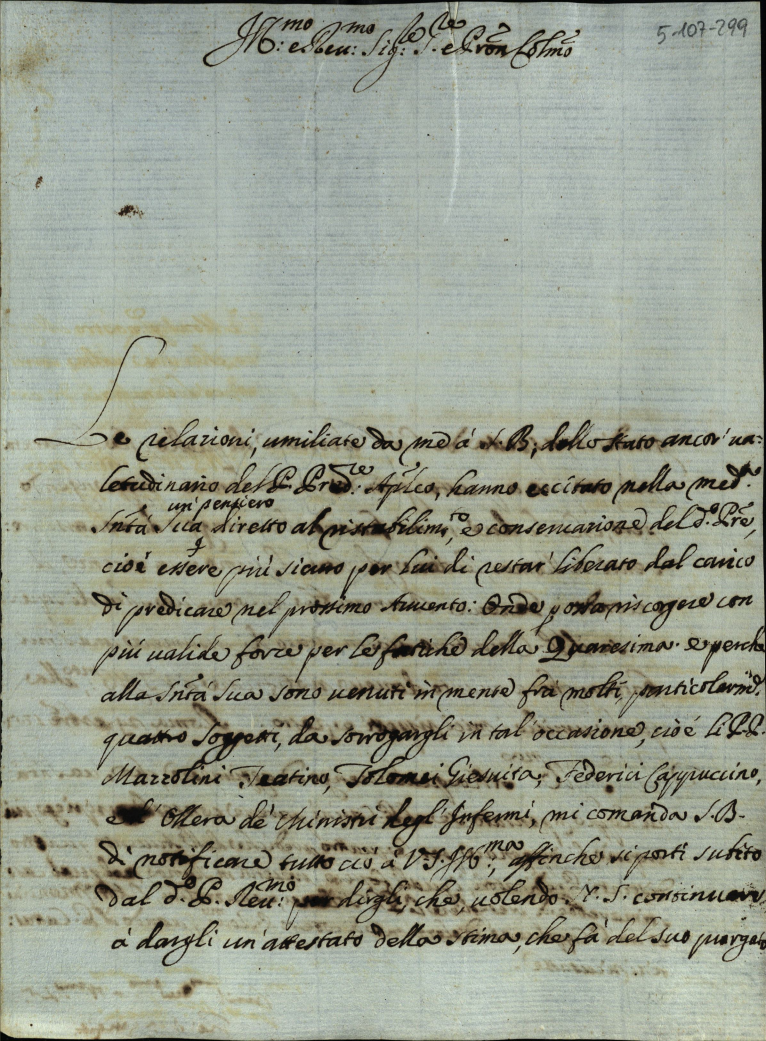 5-107-299
Ill:mo e Reu:mo Sig:re S.re e Pron Colmo
Le relazioni, umiliate da me à S.B, dello stato ancor' ua=
letudinario del P. Pred:re Aplco, hanno eccitato nella med:a
un' pensiero
Sntà Sua diretto al ristabilim:to, e conseruazione del d:o Pre,
cioè essere più sicuro per lui di restar' liberato dal carico
di predicare nel prossimo Auuento: Onde possa risorgere con
più ualide forze per le fatiche della Quaresima. e perche
alla Sntà Sua sono uenuti in mente frà molti particolarm:e
quattro soggetti, da sorrogargli in tal' occasione, cioè li P.P.
Mazzolini Teatino, Tolomei Giesuita, Federici Cappuccino,
e l' Ollera de' Ministri degl' Infermi, mi comanda S.B.
di notificare tutto ciò à V.S. Ill:ma, affinche si porti subito
dal d:o P. Reu:mo per dirgli, che, uolendo. N. S. continuare
à dargli un' attestato della stima, che fà del suo purgato